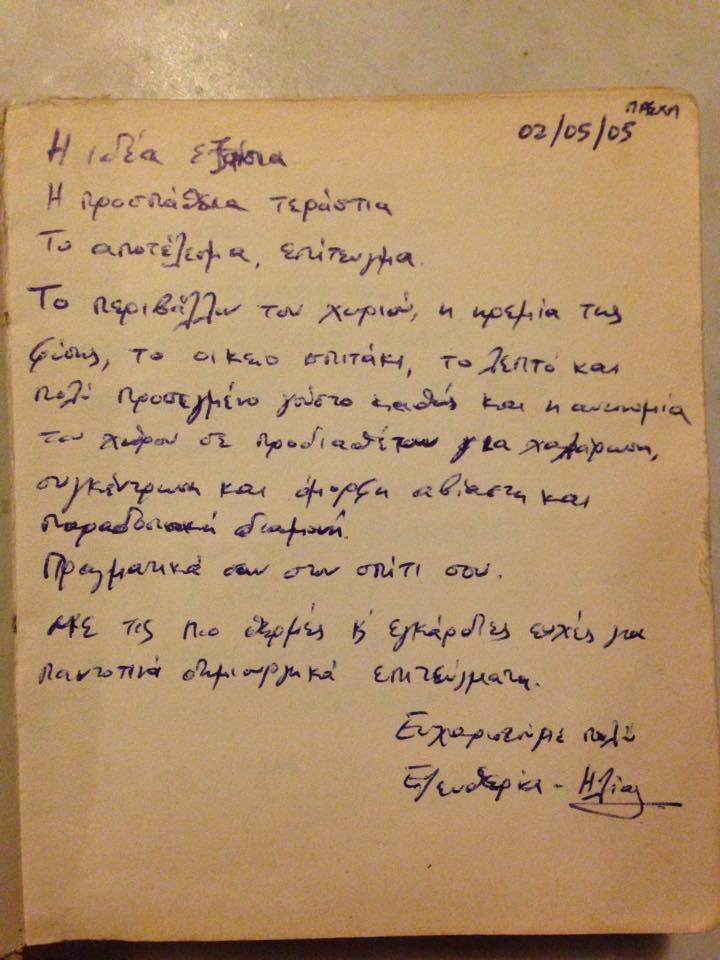 02/05/05
Η ιδέα εξαίσια
Η προσπάθεια τεράστια
Το αποτέλεσμα, επίτευγμα.
Το περιβάλλον του χωριού, η ηρεμία της
φύσης, το οικείο σπιτάκι, το λεπτό και
πολύ προσεγμένο γούστο καθώς και η αυτονομία
του χώρου σε προδιαθέτουν για χαλάρωση,
συγκέντρωση και όμορφη αβίαστη και
παραδοσιακή διαμονή.
Πραγματικά σαν στον σπίτι σου.
Με τις πιο θερμές κ' εγκάρδιες ευχές για
παντοτινά δημιουργικά επιτεύγματα.
Ευχαριστούμε πολύ
Ελευθερία - Ηλίας